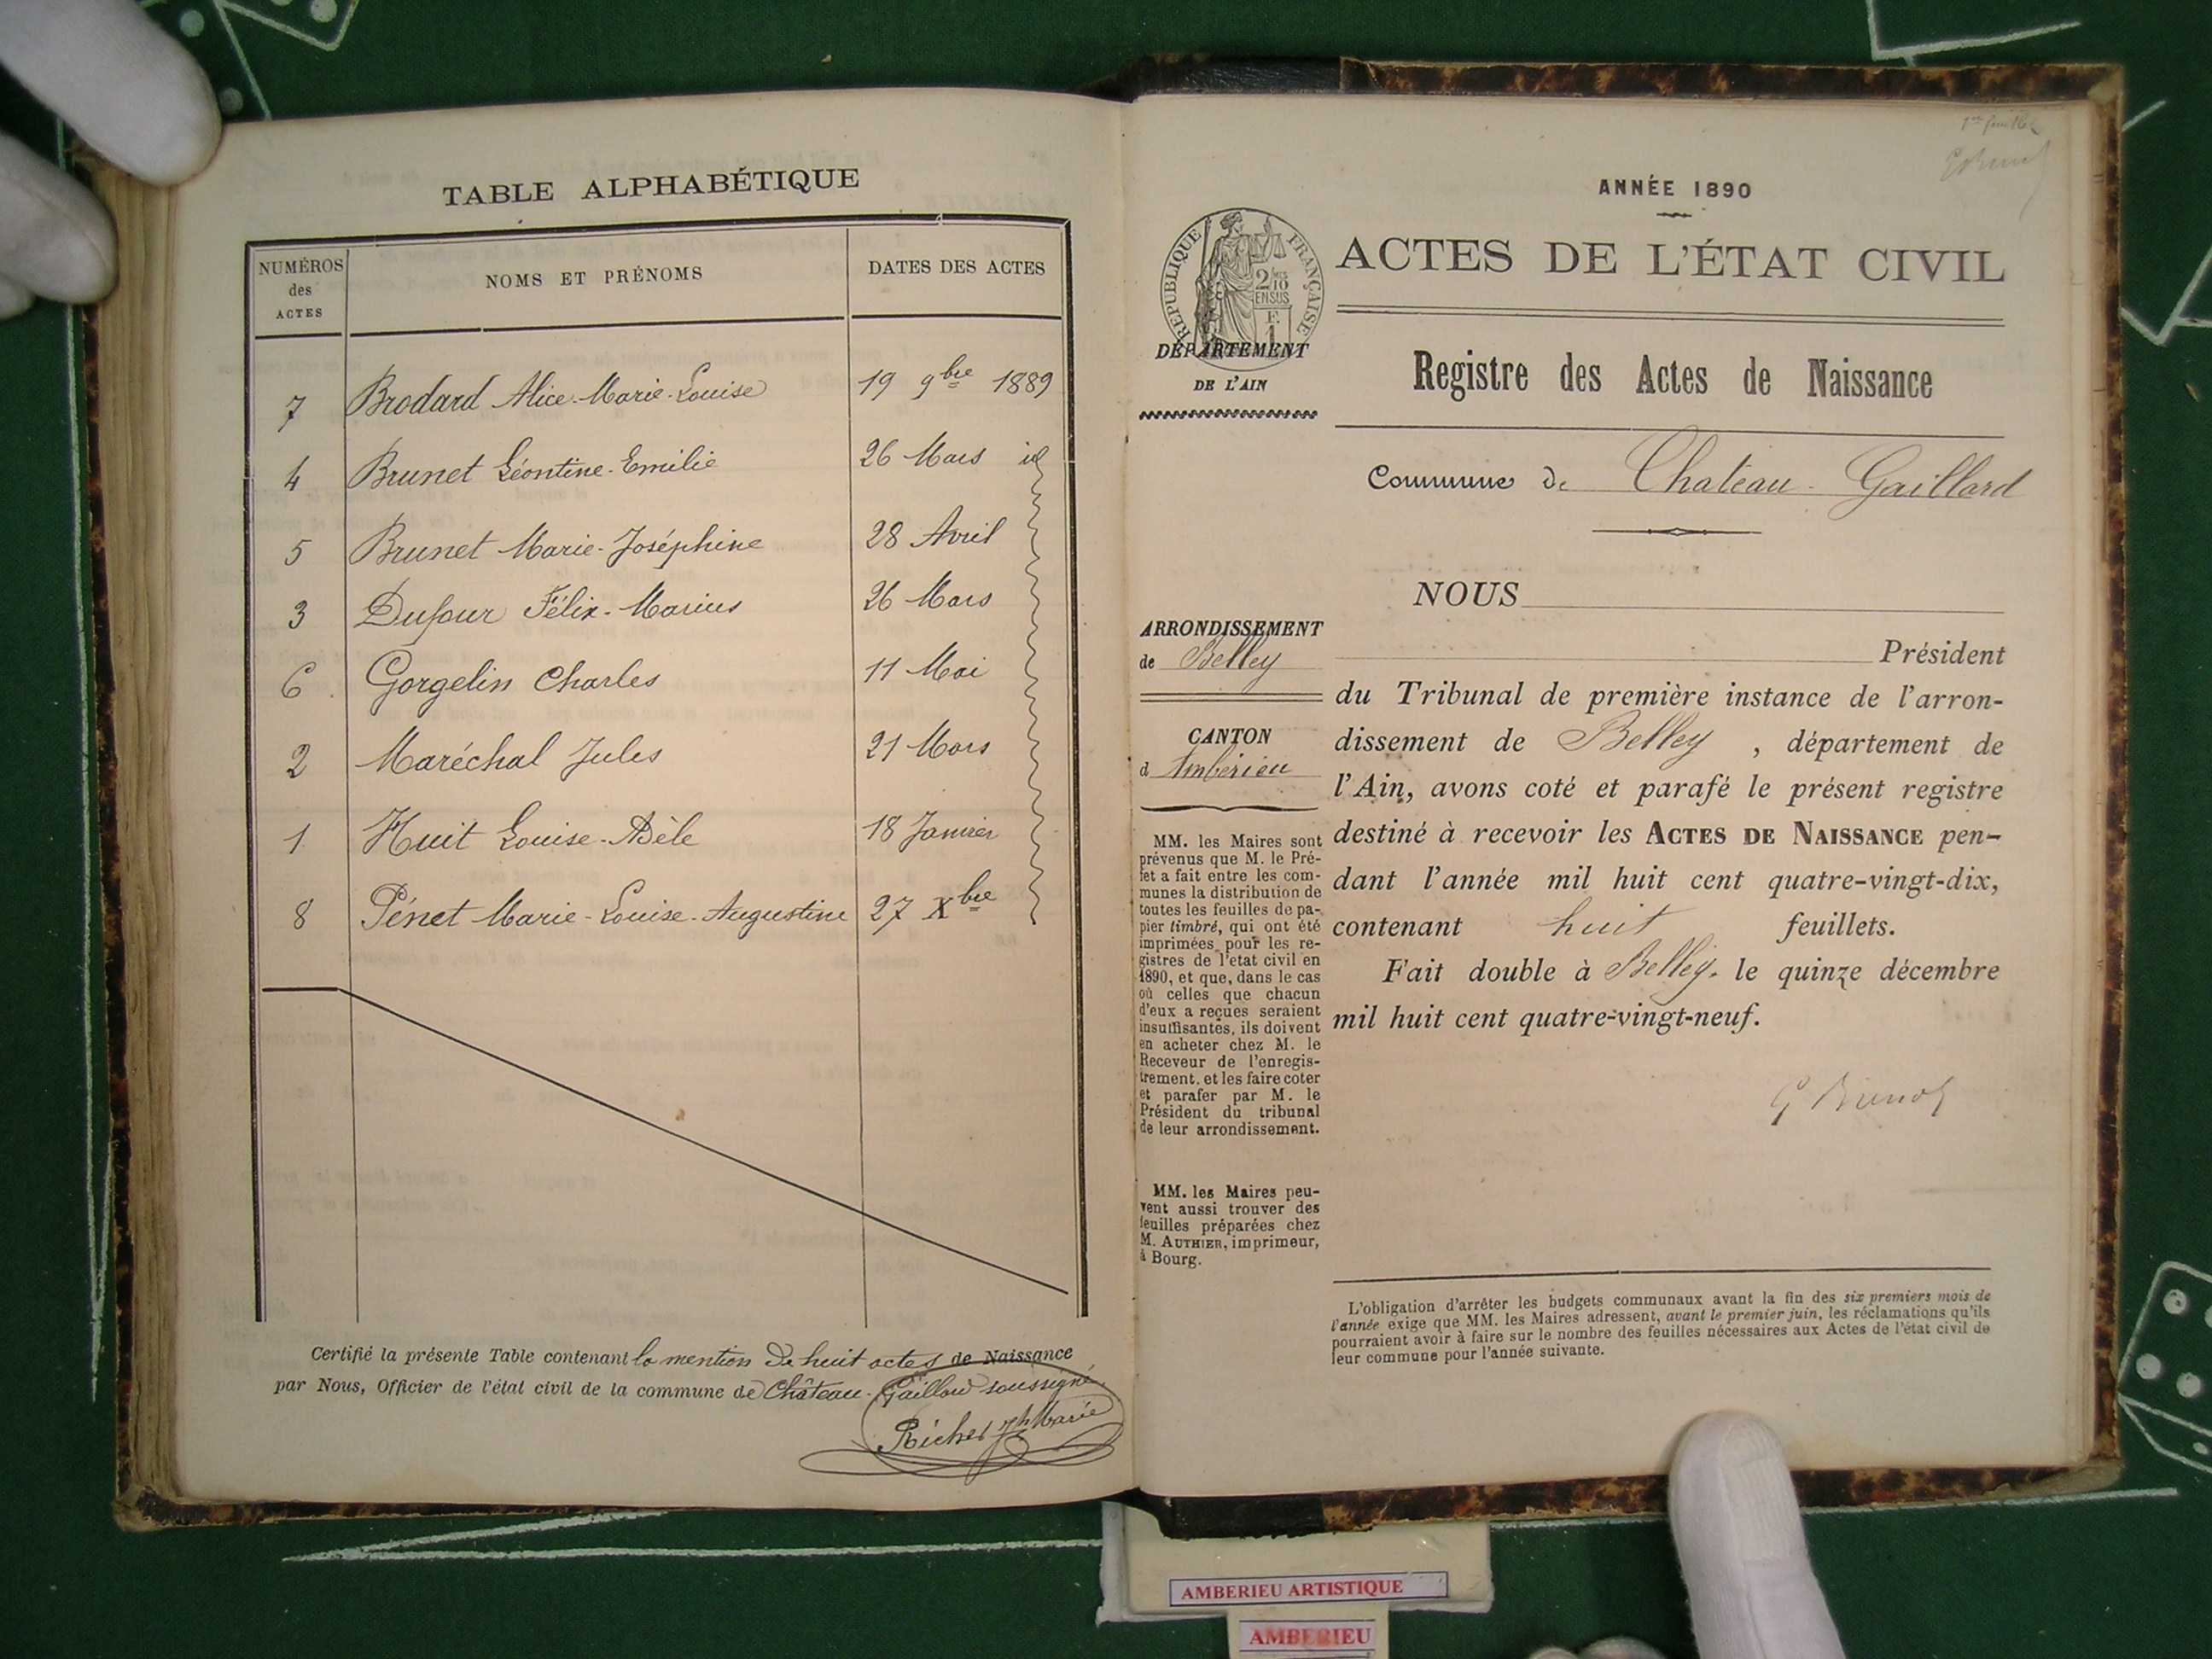 TABLE ALPHABÉTIQUE
NUMÉROS des ACTES NOMS ET PRÉNOMS DATES DES ACTES
7 Brodard Alice-Marie-Louise 19 9bre 1889
4 Brunet Léontine-Emilie 26 Mars id
5 Brunet Marie-Joséphine 28 Avril
3 Dufour Félix-Marius 26 Mars
6 Gorgelin Charles 11 Mai
2 Maréchal Jules 21 Mars
1 Huit Louise-Adèle 18 Janvier
8 Pénet Marie-Louise-Augustine 27 Xbre
Certifié la présente Table contenant la mention de huit actes de Naissance
par Nous, Officier de l'état civil de la commune de Château-Gaillard soussigné
1er feuillet
ANNÉE 1890
RÉPUBLIQUE FRANÇAISE
2/10 EN SUS
F. 1
ACTES DE L'ÉTAT CIVIL
DÉPARTEMENT
DE L'AIN
Registre des Actes de Naissance
Commune de Chateau-Gaillard
ARRONDISSEMENT
de Belley
CANTON
d Ambérieu
MM. les Maires sont
prévenus que M. le Pré-
fet a fait entre les com-
munes la distribution de
toutes les feuilles de pa-
pier timbré, qui ont été
imprimées pour les re-
gistres de l'etat civil en
1890, et que, dans le cas
où celles que chacun
d'eux a reçues seraient
insuffisantes, ils doivent
en acheter chez M. le
Receveur de l'enregis-
trement, et les faire coter
et parafer par M. le
Président du tribunal
de leur arrondissement.
MM. les Maires peu-
vent aussi trouver des
feuilles préparées chez
M. AUTHIER, imprimeur,
à Bourg.
NOUS
Président
du Tribunal de première instance de l'arron-
dissement de Belley, département de
l'Ain, avons coté et parafé le présent registre
destiné à recevoir les ACTES DE NAISSANCE pen-
dant l'année mil huit cent quatre-vingt-dix,
contenant huit feuillets.
Fait double à Belley, le quinze décembre
mil huit cent quatre-vingt-neuf.
L'obligation d'arrêter les budgets communaux avant la fin des six premiers mois de
l'année exige que MM. les Maires adressent, avant le premier juin, les réclamations qu'ils
pourraient avoir à faire sur le nombre des feuilles nécessaires aux Actes de l'état civil de
leur commune pour l'année suivante.
AMBERIEU ARTISTIQUE
AMBERIEU